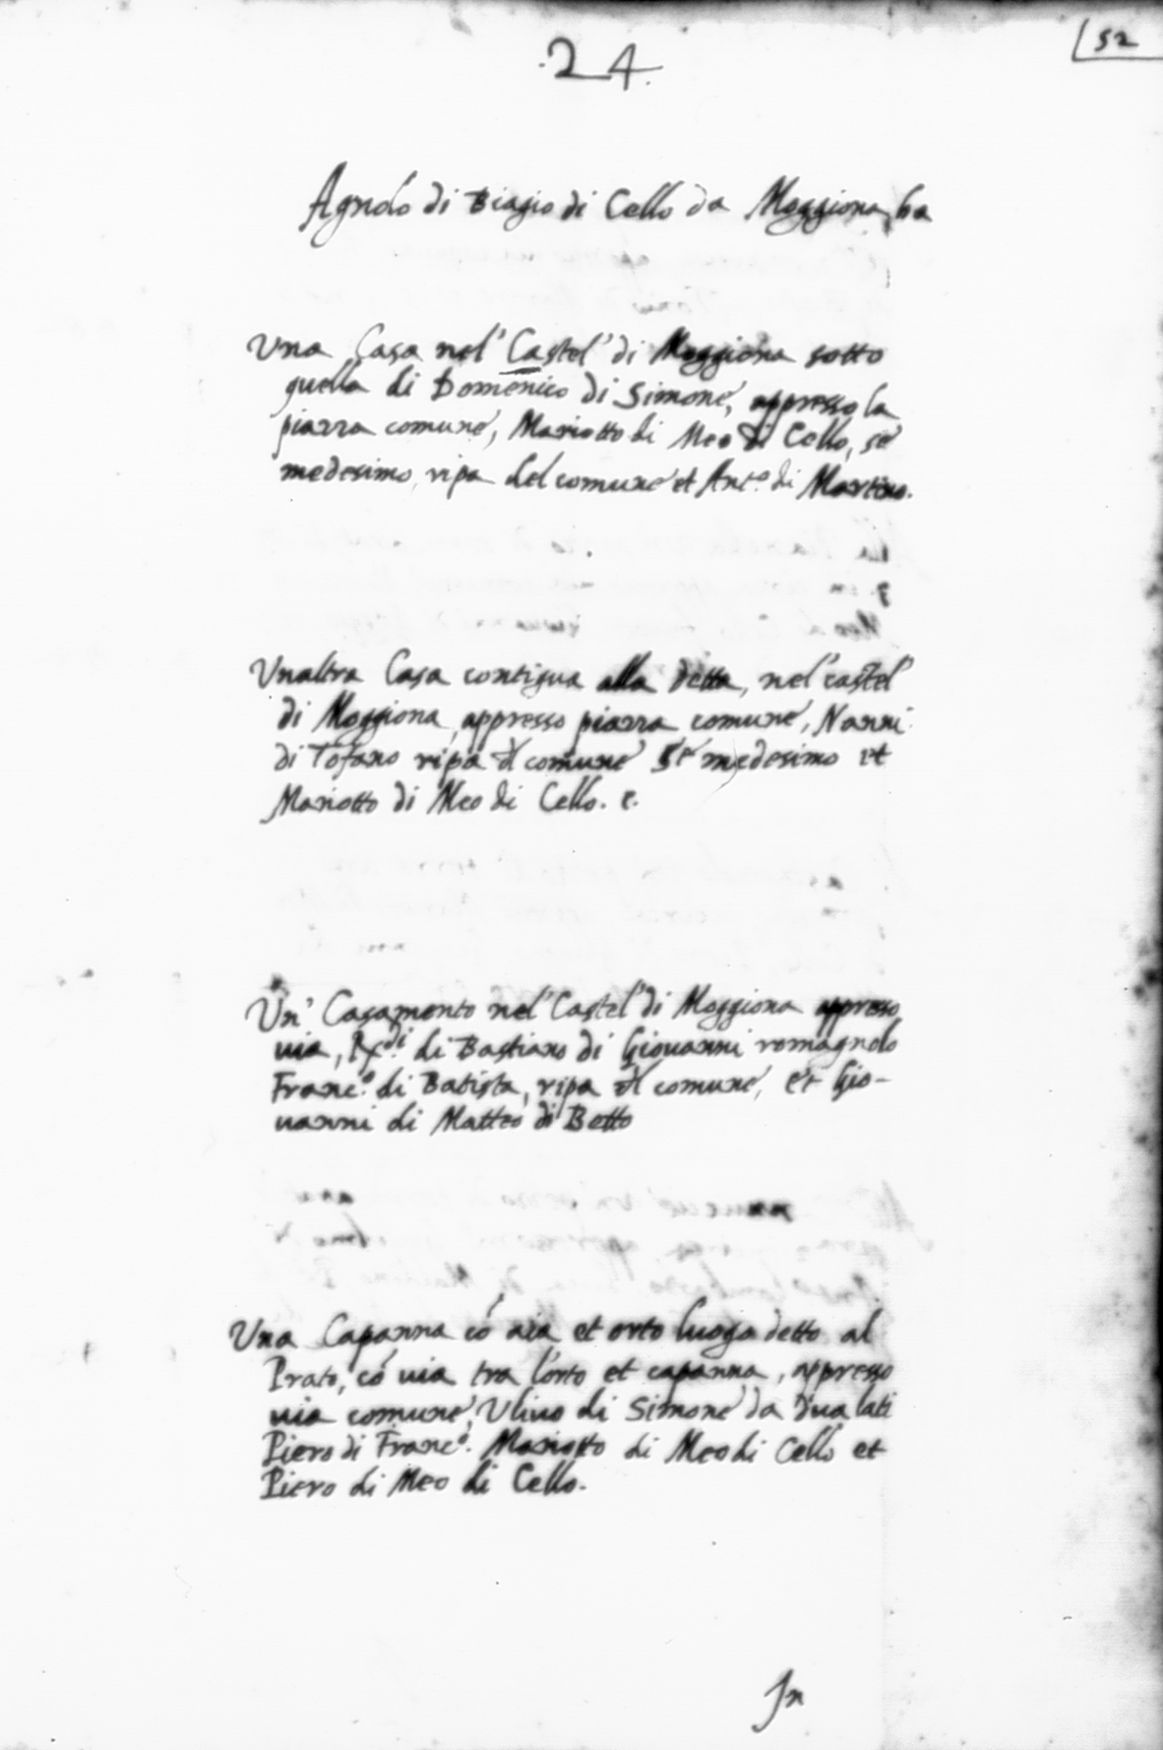 52
.24.
Agnolo di Biagio di Cello da Moggiona ha
Una Casa nel' Castel' di Moggiona sotto
quella di Domenico di Simone, appresso la
piazza comune, Mariotto di Meo di Cello, se
medesimo, ripa del comune et Ant.o di Martino.
Unaltra Casa contigua alla detta, nel' castel'
di Moggiona, appresso piazza comune, Nanni
di Tofano ripa d'l comune se medesimo et
Mariotto di Meo di Cello. e.
Un' Casamento nel' Castel' di Moggiona appresso
uia, di Bastiano di Giouanni romagnolo
Franc.o di Batista, ripa d'l comune, et Gio-
uanni di Matteo di Betto
Una Capanna có aia et orto luogo detto al
Prato, có uia tra l'orto et capanna, appresso
uia comune, Uliuo di Simone da dua lati
Piero di Franc.o. Mariotto di Meo di Cello et
Piero di Meo di Cello.
In